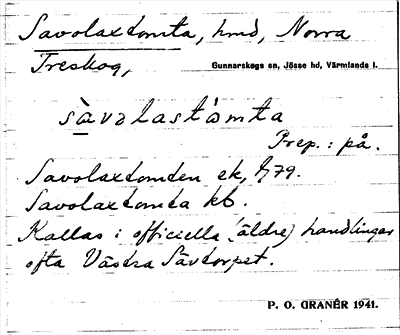 Savolaxtomta, hmd, Norra
Treskog, Gunnarskogs sn, Jösse hd, Värmlands l.
sàvalastàmta
Prep.: på.
Savolaxtomten ek, 79.
Savolaxtomta kb.
Kallas i officiella (äldre) handlingar
ofta Västra Sävtorpet.
P. O. GRANÉR 1941.